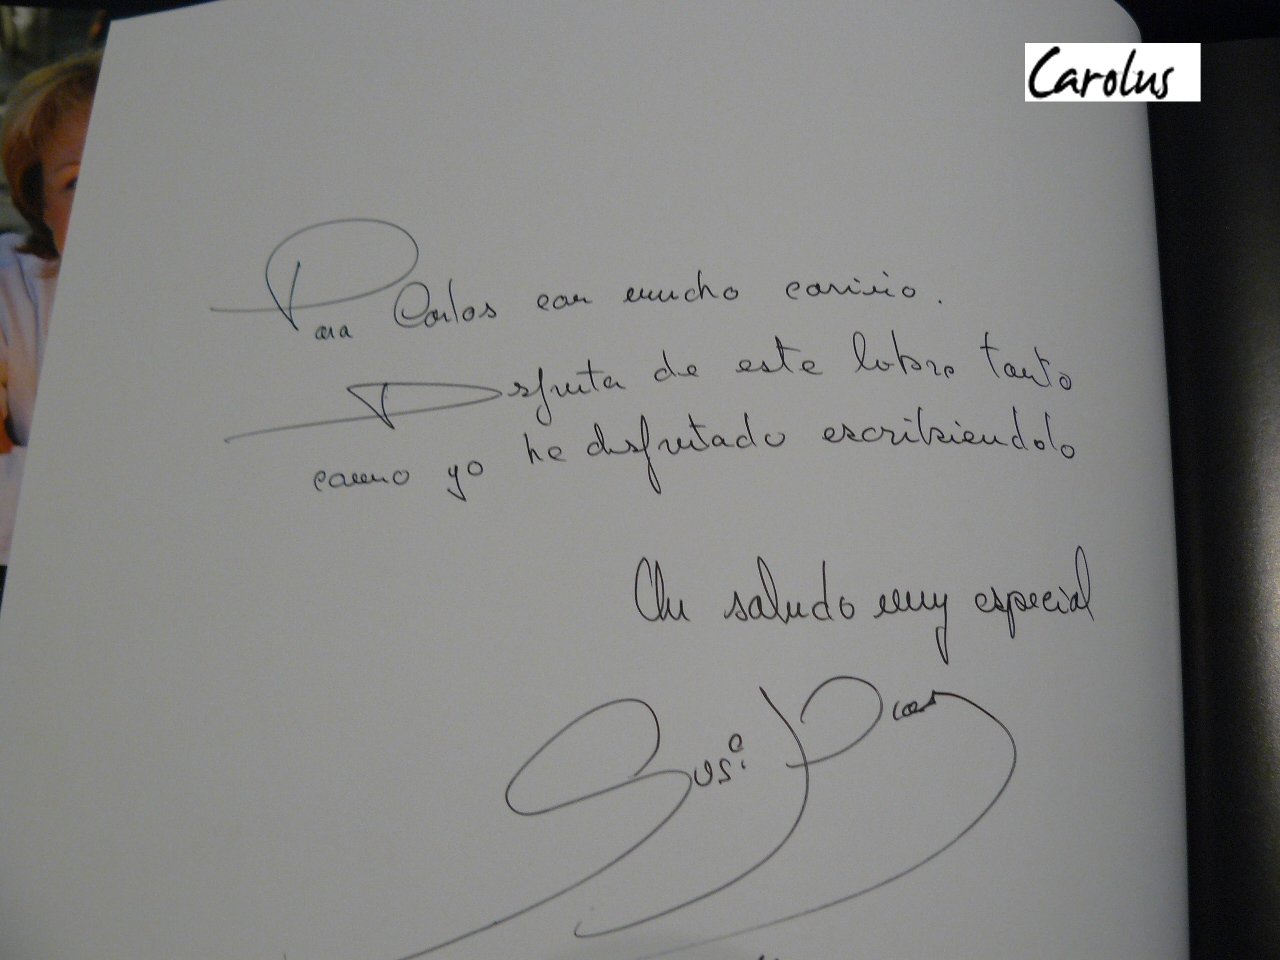 Carolus
Para Carlos con mucho cariño.
Disfruta de este libro tanto
como yo he disfrutado escribiendolo
Un saludo muy especial
Susi Díaz